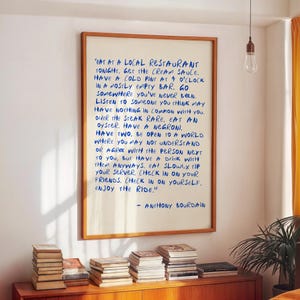 "EAT AT A LOCAL RESTAURANT
TONIGHT. GET THE CREAM SAUCE.
HAVE A COLD PINT AT 4 O'CLOCK
IN A MOSTLY EMPTY BAR. GO
SOMEWHERE YOU'VE NEVER BEEN.
LISTEN TO SOMEONE YOU THINK MAY
HAVE NOTHING IN COMMON WITH YOU.
ORDER THE STEAK RARE. EAT AN
OYSTER. HAVE A NEGRONI.
HAVE TWO. BE OPEN TO A WORLD
WHERE YOU MAY NOT UNDERSTAND
OR AGREE WITH THE PERSON NEXT
TO YOU, BUT HAVE A DRINK WITH
THEM ANYWAYS. EAT SLOWLY. TIP
YOUR SERVER. CHECK IN ON YOUR
FRIENDS. CHECK IN ON YOURSELF.
ENJOY THE RIDE."
- ANTHONY BOURDAIN